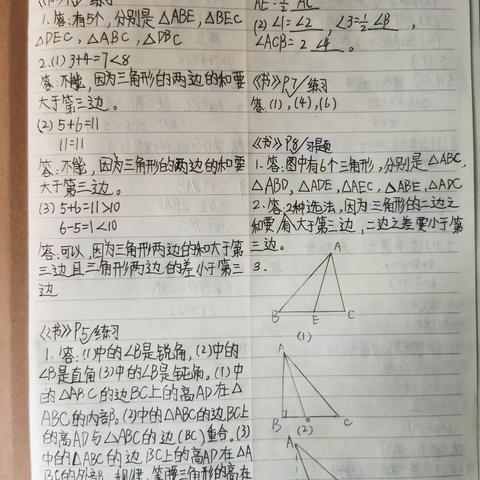 1.答:有5个,分别是△ABE,△BEC
△DEC,△ABC,△DBC
2.(1)3+4=7<8
答:不能,因为三角形的两边的和要
大于第三边。
(2)5+6=11
11=11
答:不能,因为三角形的两边的和要
大于第三边。
(3)5+6=11>10
6-5=1<10
答:可以,因为三角形两边的和大于第
三边且三角形两边的差小于第三
边
《书》P5/练习
1.答:(1)中的∠B是锐角,(2)中的
∠B是直角(3)中的∠B是钝角。(1)中
的△ABC的边BC上的高AD在△
ABC的内部。(2)中的△ABC的边BC上
的高AD与△ABC的边(BC)重合。(3)
中的△ABC的边BC上的高AD在△A
BC的外部。三角形的高在
AE=½AC
(2)∠1=∠2,∠3=½∠B,
∠ACB=2∠4。
《书》P7/练习
答:(1),(4),(6)
《书》P8/习题
1.答:图中有6个三角形,分别是△ABC,
△ABD,△ADE,△AEC,△ABE,△ADC
2.答:2种选法,因为三角形的二边之
和要大于第三边,二边之差要小于第
三边。
3.
A
B E C
(1)
A
B C
(2)
A